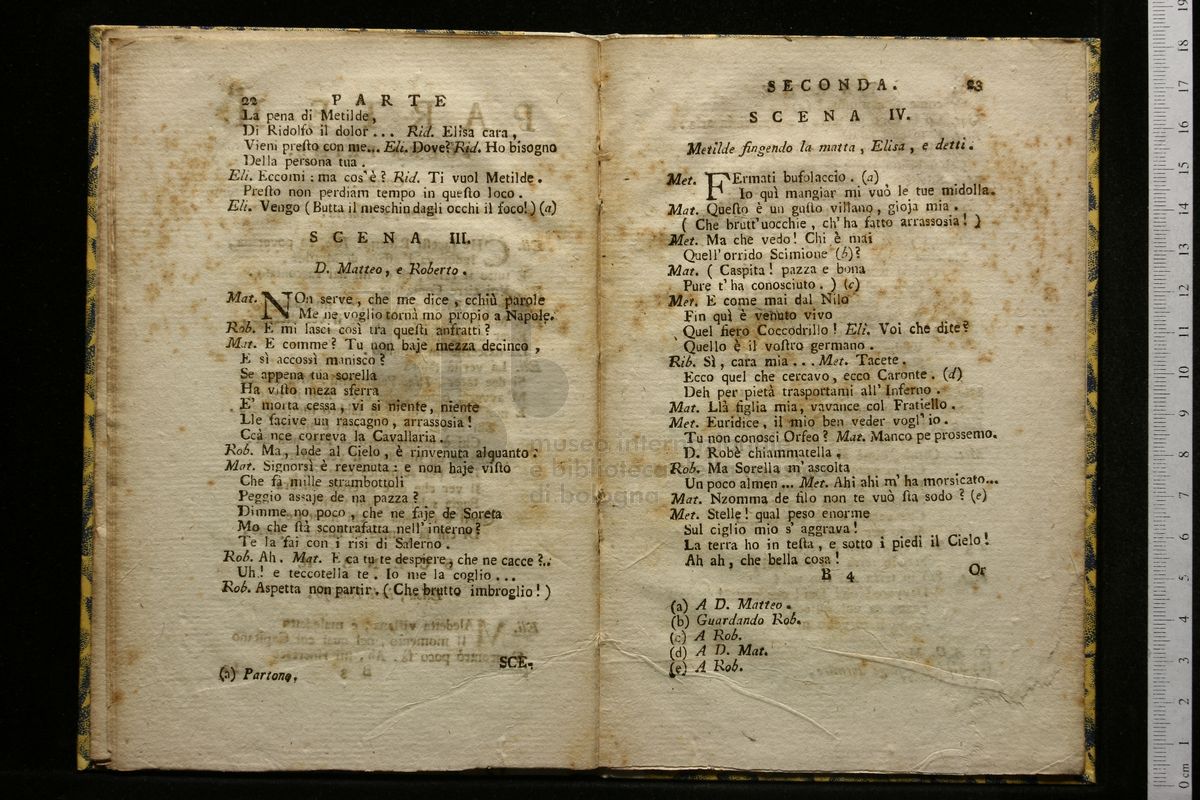 22 PARTE
La pena di Metilde,
Di Ridolfo il dolor... Rid. Elisa cara,
Vieni preſto con me... Eli. Dove? Rid. Ho bisogno
Della persona tua.
Eli. Eccomi: ma cos'è? Rid. Ti vuol Metilde.
Preſto non perdiam tempo in queſto loco.
Eli. Vengo (Butta il meschin dagli occhi il foco!) (a)
SCENA III.
D. Matteo, e Roberto.
Mat. NOn serve, che me dice, cchiù parole
Me ne voglio tornà mo propio a Napole.
Rob. E mi lasci così tra queſti anfratti?
Mat. E comme? Tu non haje mezza decinco,
E sì accossì manisco?
Se appena tua sorella
Ha viſto meza sferra
E' morta cessa, vi si niente, niente
Lle facive un rascagno, arrassosia!
Ccà nce correva la Cavallaria.
Rob. Ma, lode al Cielo, è rinvenuta alquanto:
Mat. Signorsì è revenuta: e non haje viſto
Che fà mille strambottoli
Peggio assaje de na pazza?
Dimme no poco, che ne faje de Soreta
Mo che ſtà scontrafatta nell'interno?
Te la fai con i risi di Salerno.
Rob. Ah. Mat. E ca tu te despiere, che ne cacce?..
Uh! e teccotella te. Io me la coglio...
Rob. Aspetta non partir. (Che brutto imbroglio!)
SCE-
(a) Partono.
SECONDA. 23
SCENA IV.
Metilde fingendo la matta, Elisa, e detti.
Met. FErmati bufolaccio. (a)
Io quì mangiar mi vuò le tue midolla.
Mat. Queſto è un guſto villano, gioja mia.
(Che brutt'uocchie, ch'ha fatto arrassosia!)
Met. Ma che vedo! Chi è mai
Quell'orrido Scimione (b)?
Mat. (Caspita! pazza e bona
Pure t'ha conosciuto.) (c)
Met. E come mai dal Nilo
Fin quì è venuto vivo
Quel fiero Coccodrillo! Eli. Voi che dite?
Quello è il voſtro germano.
Rib. Sì, cara mia... Met. Tacete.
Ecco quel che cercavo, ecco Caronte. (d)
Deh per pietà trasportami all'Inferno.
Mat. Llà figlia mia, vavance col Fratiello.
Met. Euridice, il mio ben veder vogl'io.
Tu non conosci Orfeo? Mat. Manco pe prossemo.
D. Robè chiammatella.
Rob. Ma Sorella m'ascolta
Un poco almen... Met. Ahi ahi m'ha morsicato...
Mat. Nzomma de filo non te vuò ſta sodo? (e)
Met. Stelle! qual peso enorme
Sul ciglio mio s'aggrava!
La terra ho in teſta, e sotto i piedi il Cielo!
Ah ah, che bella cosa!
B 4 Or
(a) A D. Matteo.
(b) Guardando Rob.
(c) A Rob.
(d) A D. Mat.
(e) A Rob.
e biblioteca
di bologna